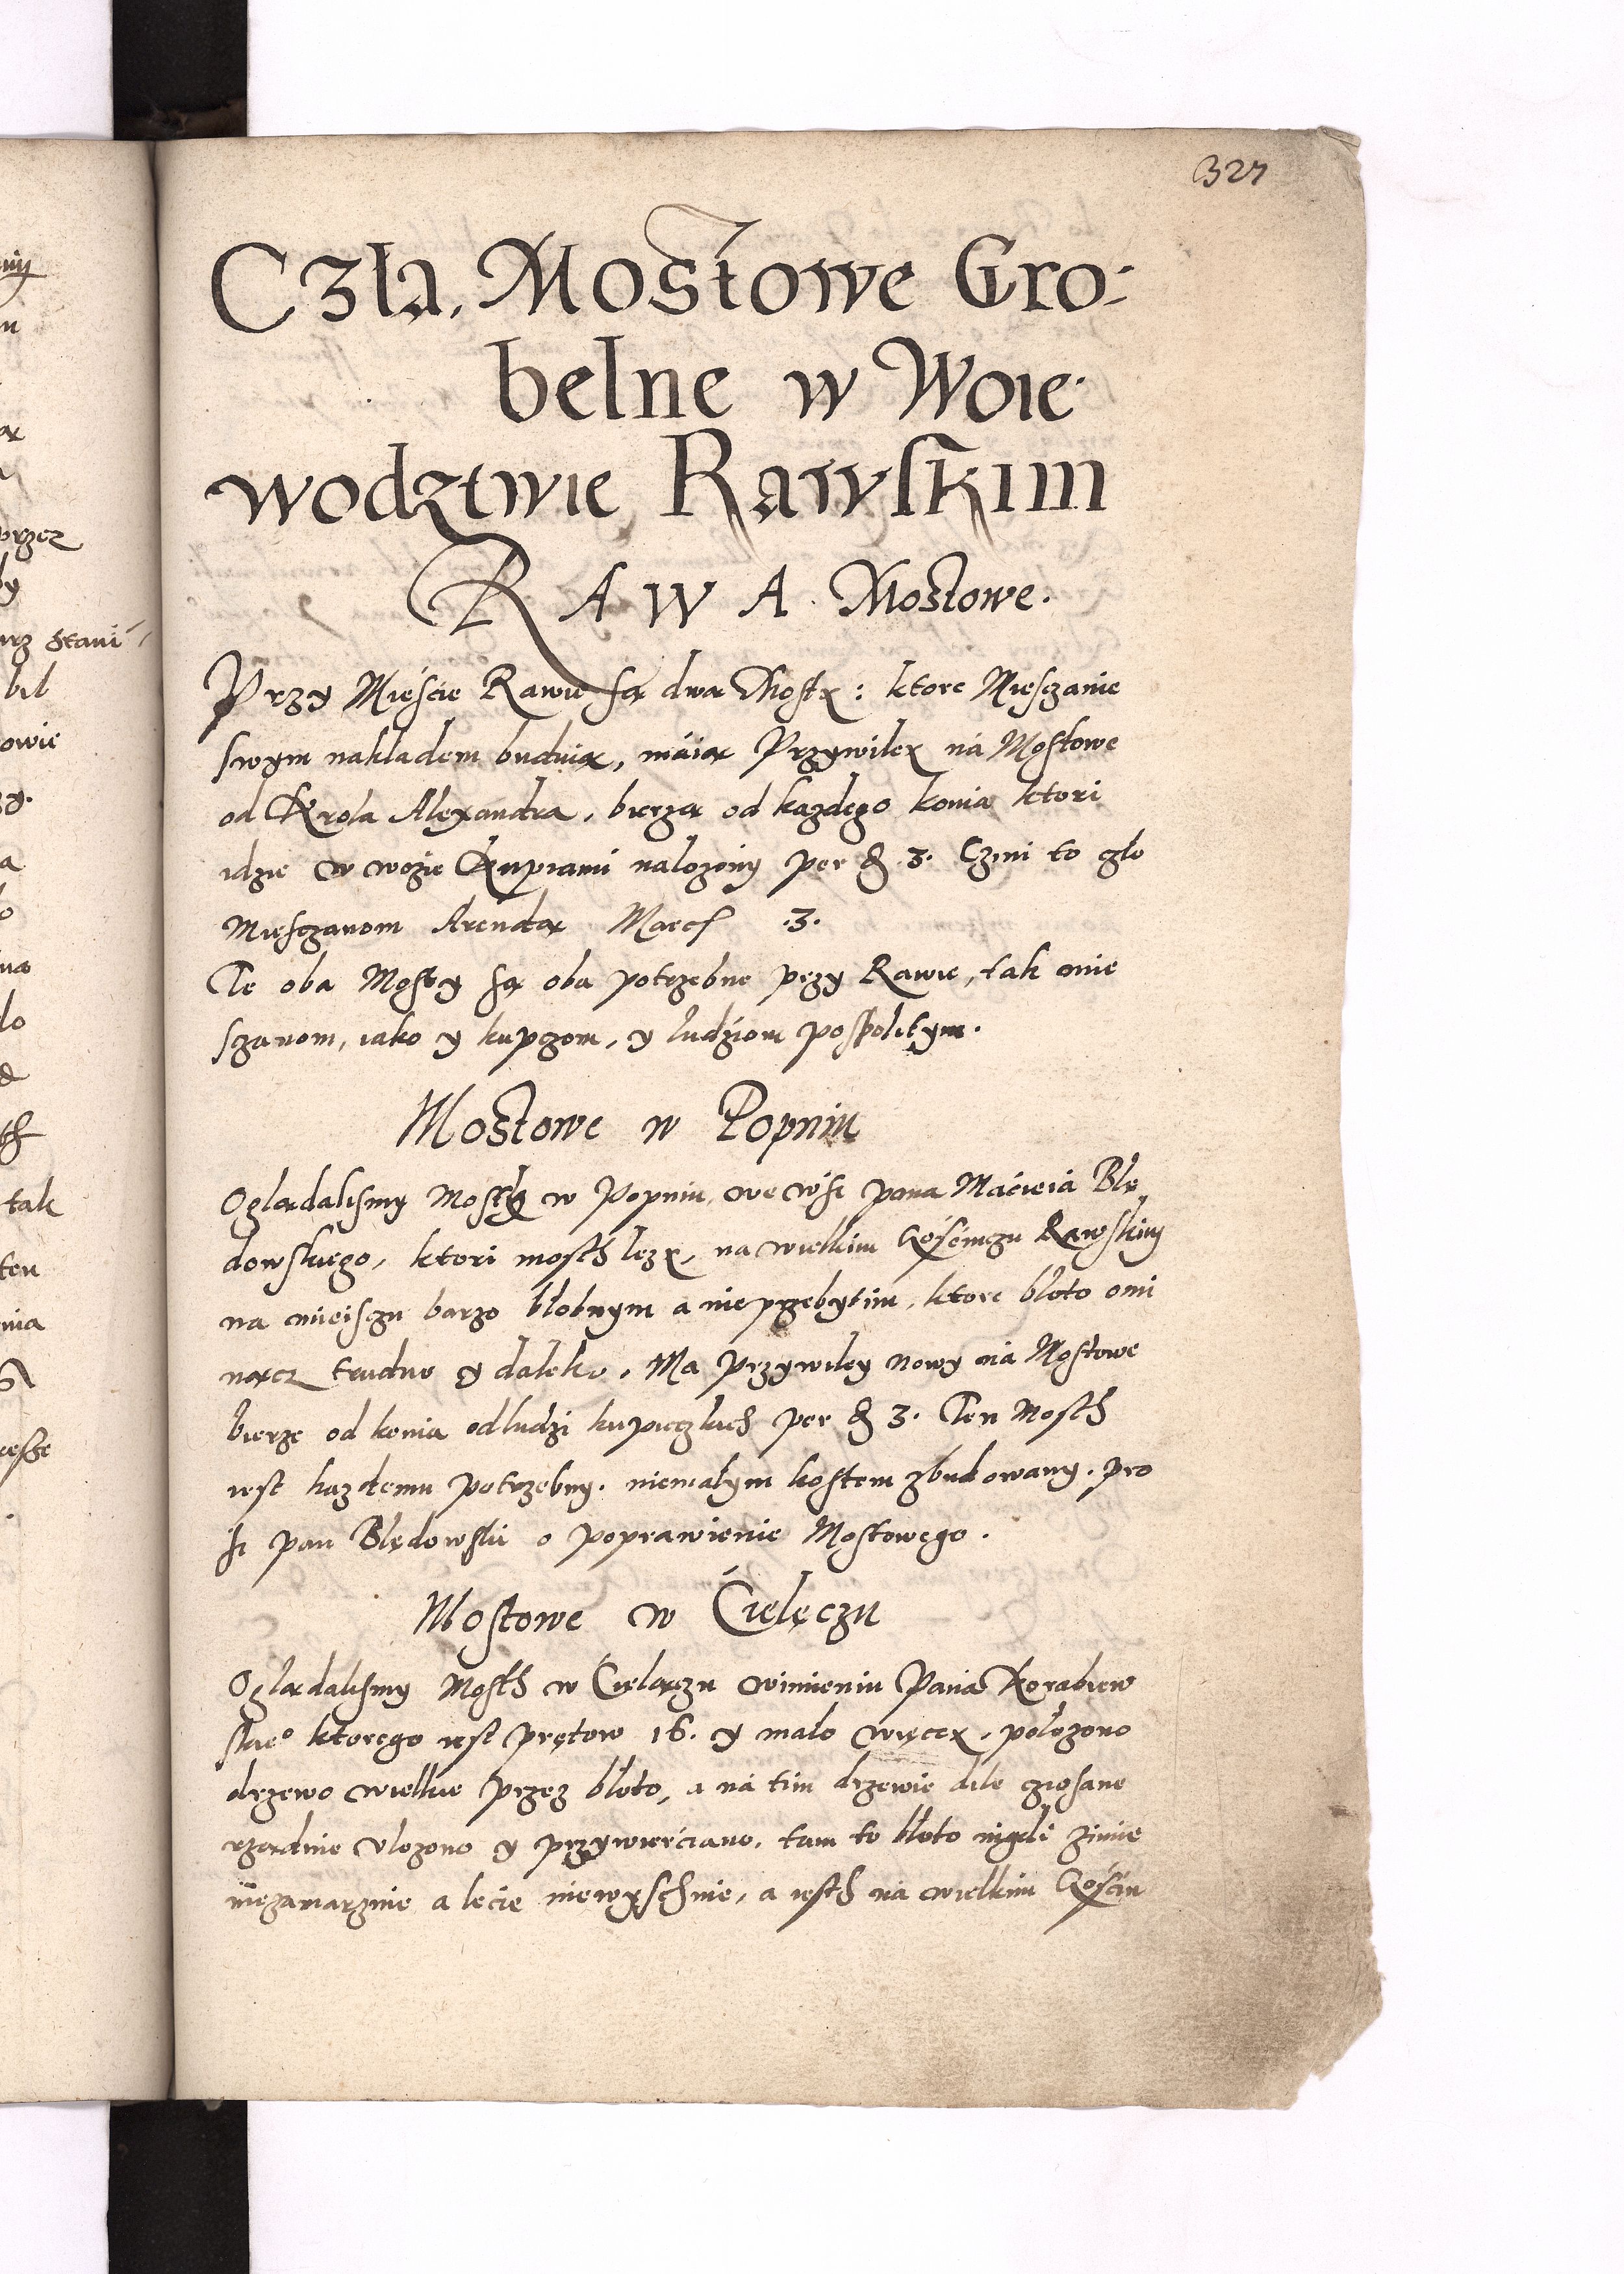 327
Czła, Mostowe Gro-
belne w Woie-
wodztwie Rawskim
RAWA Mostowe.
Przy Mieście Rawie są dwa Mosty: ktore Miesczanie
swym nakladem buduią, máią Przywiley ná Mostowe
od Krola Alexandra, bierzą od kazdego konia ktori
idzie w wozie kupiami nalozony per 3. Czini to czło
Miesczanom Arendą Marcs .3.
Te oba Mosty są oba potrzebne przy Rawie, tak mie
sczanom, iako y kupczom, y ludziom pospolitym.
Mostowe w Popniu
Oglądalismy Mosth w Popniu, we wsi pana Máciéiá Blę
dowskiego, ktori mosth lezy, na wielkim Gościnczu Rawskim
na mieisczu barzo błotnym a nieprzebytim, ktore błoto omi
nącz trudno y daleko. Ma przywiley nowy ná Mostowe
bierze od konia od ludzi kupieczkich per 3. Ten Mosth
iest kazdemu potrzebny. niemałym kostem zbudowany. pro
si pan Blędowski o poprawienie Mostowego.
Mostowe w Cielęczu
Oglądalismy Mosth w Cielączu wimieniu Paná Korabiew
skieo ktorego iest prętow 16. y malo więcey, połozono
drzewo wielkie przez błoto, a ná tim drzewie dile cziosane
rządnie vlozono y przywierciano, tam to błoto nigdi zimie
niezamarznie a lecie niewyschnie, a iesth ná wielkim Gościn